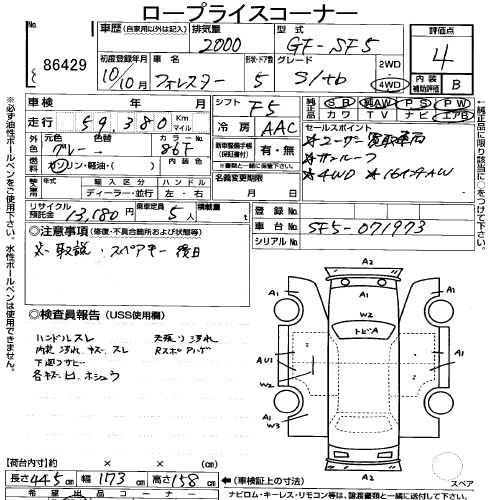 ロープライスコーナー
No. 86429
車歴 (自家用以外は記入)
排気量 2000
型式 GF-SF5
評価点 4
初度登録年月 10/10月
車名 フォレスター
形状・ドア数 5
グレード S/tb
2WD
4WD
内装補助評価 B
車検 年 月
シフト F5
純正品 SR 純AW PS PW
カワ TV ナビ エアB
走行 59,380 Km マイル
冷房 AAC
セールスポイント
★ユーザー買取車両
★サンルーフ
★4WD ★16インチAW
外色 元色 グレー 色替
カラーNo. 86F
新車整備手帳(保証書付) 有・無
※書類と一緒に保管下さい
燃料 ガソリン・軽油・( )
内装色
名義変更期限 月 日
輸入車 年式 輸入区分 ハンドル
ディーラー・並行 左・右
リサイクル預託金 13,180円
乗車定員 5人
積載量 t
登録No.
車台No. SF5-071973
シリアルNo.
◎注意事項 (修復・不具合箇所および状態等)
※取説・スペアキー後日
◎検査員報告 (USS使用欄)
ハンドルスレ 天張り汚れ
内装汚れ キズ スレ RスポAハゲ
下廻りサビ
各キズ凹、ホシュウ
A2
A1 A1 A1 A1
W2
トビA
AU1 A1
W2
A1
W3
A2
スペア
【荷台内寸】 約 × × (cm)
長さ 445 cm 幅 173 cm 高さ 158 cm
◎(車検証上の寸法)
希望出品コーナー
ナビロム・キーレス・リモコン等は、譲渡書類と一緒に送付して下さい。
※必ず油性ボールペンをご使用下さい。水性ボールペンは使用できません。
※純正品に限り該当に○をして下さい。